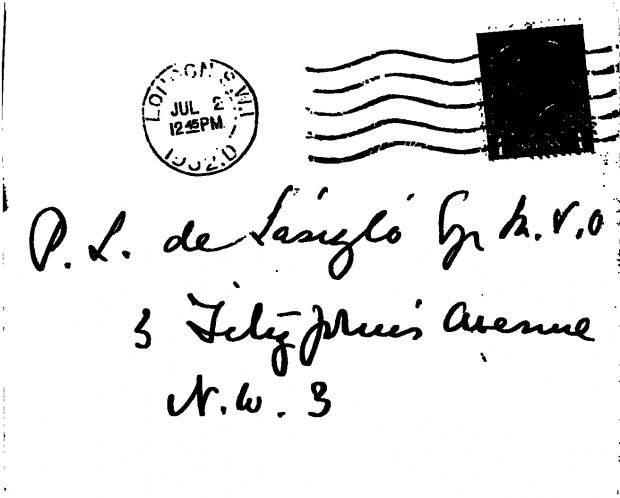 LONDON S.W.1
JUL 2
12 45 PM
1932.D
P. L. de László Esqr M.V.O
3 Fitzjohn's Avenue
N.W. 3